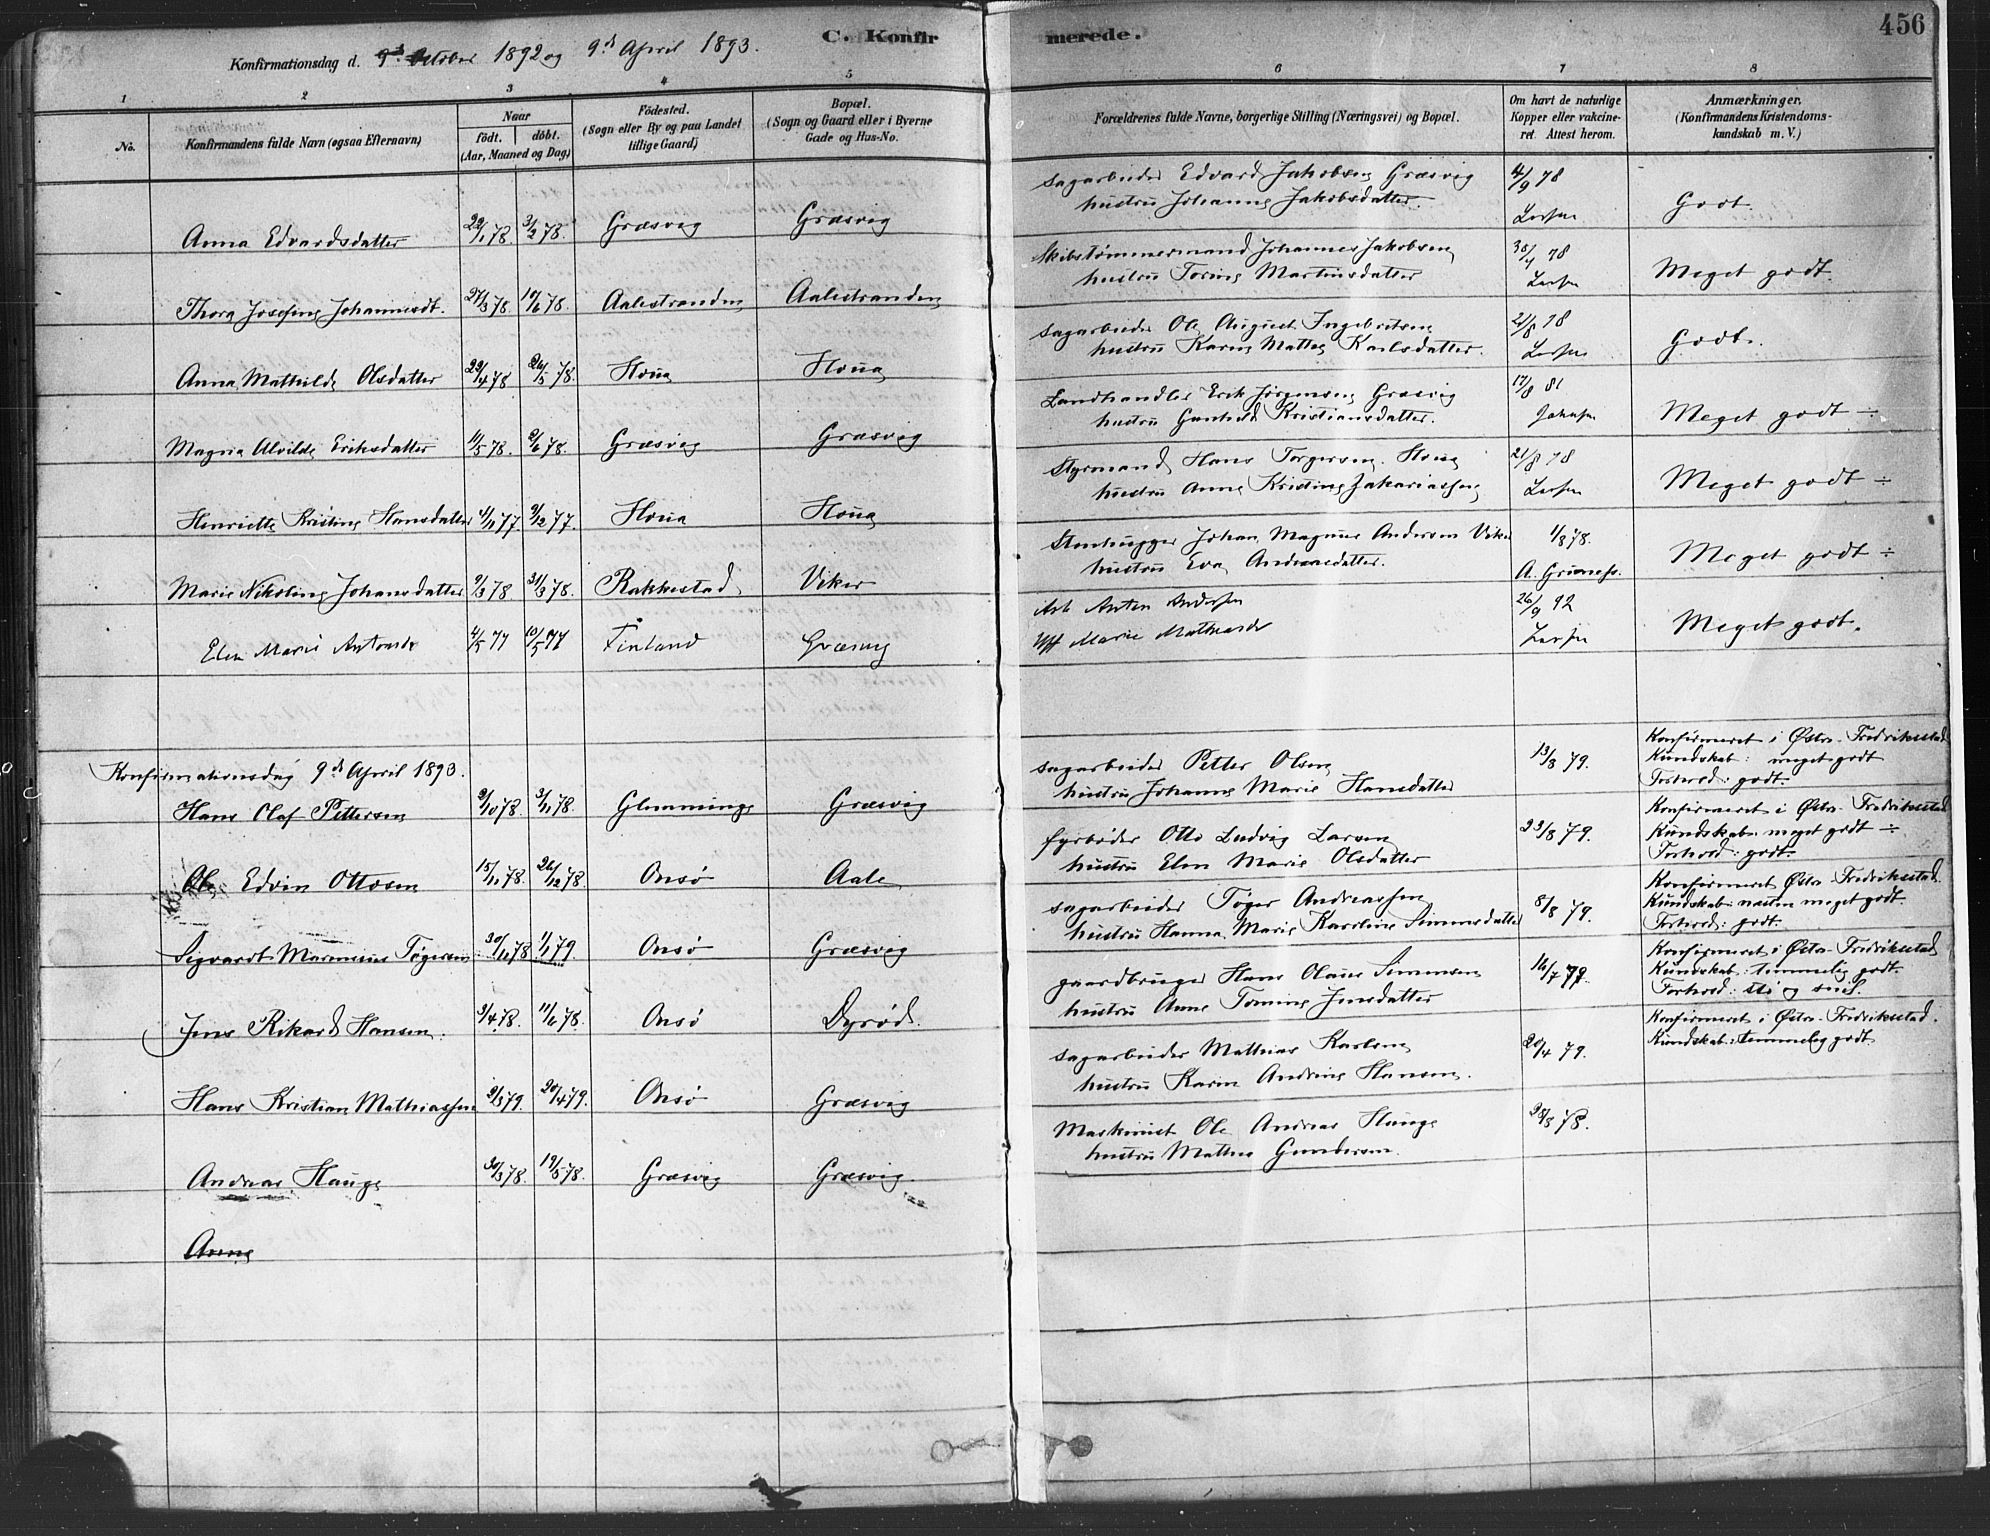 456
C. Konfirmerede.
Konfirmationsdag d. 9de October 1892 og 9de April 1893.
1 2 3 4 5 6 7 8
No.
Konfirmandens fulde Navn (ogsaa Efternavn)
Naar
født. døbt.
(Aar, Maaned og Dag)
Fødested.
(Sogn eller By og paa Landet
tillige Gaard)
Bopæl.
(Sogn og Gaard eller i Byerne
Gade og Hus-No.
Forældrenes fulde Navne, borgerlige Stilling (Næringsvei) og Bopæl.
Om havt de naturlige
Kopper eller vakcine-
ret. Attest herom.
Anmærkninger.
(Konfirmandens Kristendoms-
kundskab m. V.)
Anna Edvardsdatter 22/1 78. 3/2 78. Græsvig Græsvig
Sagarbeider Edvard Jakobsen Græsvig
hustru Johanne Jakobsdatter.
4/9 78
Larsen
Godt.
Thora Josefine Johannesdt. 27/3 78. 10/6 78. Aalestranden Aalestranden
Skibstømmermand Johannes Jakobsen
hustru Torine Martinsdatter
30/4 78
Larsen
Meget godt.
Anna Mathilde Olsdatter 22/4 78 26/5 78. Houa Houa
Sagarbeider Ole August Ingebretsen
hustru Karen Mathea Karlsdatter.
21/8 78
Larsen
Godt.
Magna Alvilde Eriksdatter 11/5 78. 2/6 78. Græsvig Græsvig
Landhandler Erik Jørgensen Græsvig
hustru Gunhild Kristiansdatter.
17/8 81
Johnsen
Meget godt ÷
Henriette Kristine Hansdatter 4/11 77 9/12 77. Houa Houa
Styrmand Hans Torgersen. Houa
hustru Anne Kristine Zakariassen
21/8 78
Larsen
Meget godt ÷
Marie Nikoline Johansdatter 9/3 78 31/3 78. Rakkestad Viker
Stenhugger Johan Magnus Andersen Viker
hustru Eva Andreasdatter.
1/8 78.
Meget godt ÷
Elen Marie Antonsdt 4/5 77 10/5 77 Finland Græsvig
Arb Anton Andersen
Hst Marie
26/9 92
Larsen
Meget godt.
Konfirmationsdag 9de April 1893.
Hans Olaf Pettersen 2/10 78. 3/11 78. Glemminge Græsvig
Sagarbeider Petter Olsen
hustru Johanne Marie Hansdatter
13/8 79.
Konfirmeret i Østre Fredriksstad
Kundskab: meget godt
Forhold: godt.
Ole Edvin Ottosen 15/11 78. 26/12 78. Onsø Aale
fyrbøder Otto Ludvig Larsen
hustru Elen Marie Olsdatter
22/8 79.
Konfirmeret i Østre Fredriksstad
Kundskab: meget godt ÷
Forhold: godt.
Sigvardt Marensius Tøgersen 30/11 78 1/1 79 Onsø Græsvig
Sagarbeider Tøger Andreassen
hustru Hanna Marie Karoline Simensdatter
8/8 79.
Konfirmeret Østre Fredriksstad.
Kundskab: næsten meget godt.
Forhold: godt.
Jens Rikard Hansen. 3/4 78. 11/6 78. Onsø Dyrød.
gaardbruger Hans Olaus Simensen
hustru Anne Tomine Jensdatter
16/7 79.
Konfirmeret i Østre Fredriksstad
Kundskab: temmelig godt.
Hans Kristian Mathiassen 2/3 79. 20/4 79. Onsø Græsvig
Sagarbeider Mathias Karlsen
hustru Karin Andrine Hansen.
20/4 79.
Konfirmeret i Østre Fredriksstad.
Kundskab: temmelig godt.
Andreas Hauge 30/3 78. 19/5 78. Græsvig Græsvig.
Maskinist Ole Andreas Hauge
hustru Mathea Gundersen.
28/8 78.
Anne